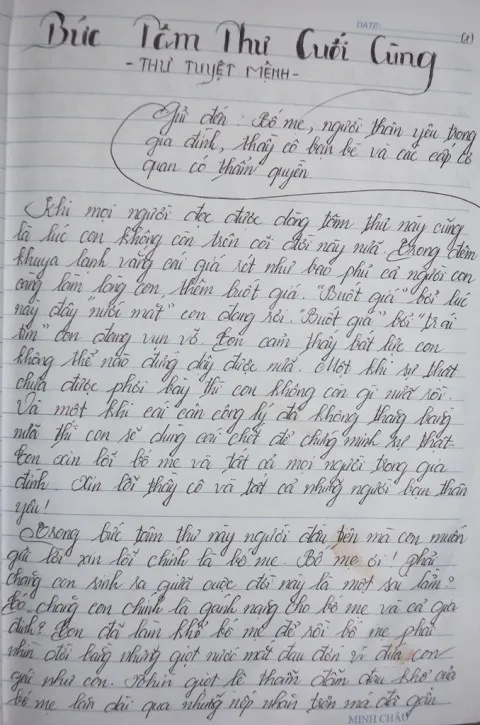 DATE:
(1)
Bức Tâm Thư Cuối Cùng
- THƯ TUYỆT MỆNH -
Gửi đến : Bố mẹ, người thân yêu trong
gia đình, thầy cô bạn bè và các cấp cơ
quan có thẩm quyền.
Khi mọi người đọc được dòng tâm thư này cũng
là lúc con không còn trên cõi đời này nữa. Trong đêm
khuya lạnh vắng cái giá rét như bao phủ cả người con
càng làm lòng con thêm buốt giá. "Buốt giá" bởi lúc
này đây "nước mắt" con đang rơi. "Buốt giá" bởi "trái
tim" con đang vụn vỡ. Con cảm thấy bất lực con
không thể nào đứng dậy được nữa. Một khi sự thật
chưa được phơi bày thì con không còn gì nữa rồi.
Và một khi cái cán công lý đã không thăng bằng
nữa thì con sẽ dùng cái chết để chứng minh sự thật.
Con xin lỗi bố mẹ và tất cả mọi người trong gia
đình. Xin lỗi thầy cô và tất cả những người bạn thân
yêu!
Trong bức tâm thư này người đầu tiên mà con muốn
gửi lời xin lỗi chính là bố mẹ. Bố mẹ ơi! phải
chăng con sinh ra giữa cuộc đời này là một sai lầm?
chăng con chính là gánh nặng cho bố mẹ và cả gia
đình? Con đã làm khổ bố mẹ để rồi bố mẹ phải
nhìn đời bằng những giọt nước mắt đau đớn vì đứa con
gái như con. Nhìn giọt lệ thấm đẫm sầu khổ của
bố mẹ lăn dài qua những nếp nhăn trên má đã gần
MINH CHÂU